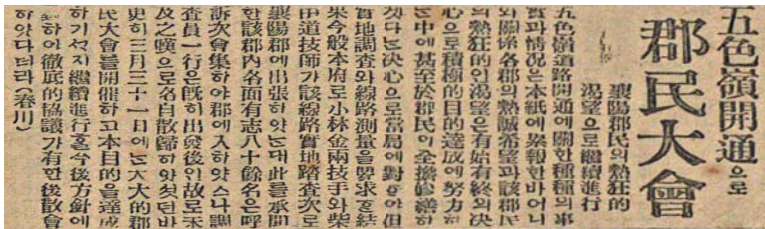 五色嶺開通으로
郡民大會
襄陽郡民의熱狂的
渴望으로繼續進行
五色嶺道路開通에關한種種의事
實과情況은本紙에累報한바어니
와關係各郡의熱誠希望과該郡民
의熱狂的인渴望은有始有終의决
心으로積極的目的達成에努力하
는中에甚至於郡民이全擔修繕하
겟다는决心으로當局에對하야但
實地調査와線路測量을要求한結
果今般本府로小林金兩技手와柴
田道技師가該線路實地踏査次로
襄陽郡에出張하얏는대此를承聞
한該郡內各面有志八十餘名은呼
訴次會集하야郡에入하얏스나調
査員一行은旣히出發後인故로未
及之嘆으로各自散歸하얏섯던바
更히三月三十一日에는大大的郡
民大會를開催하고本目的을達成
하기까지繼續進行할今後方針에
하야徹底的協議가有한後散會
하얏다더라(春川)